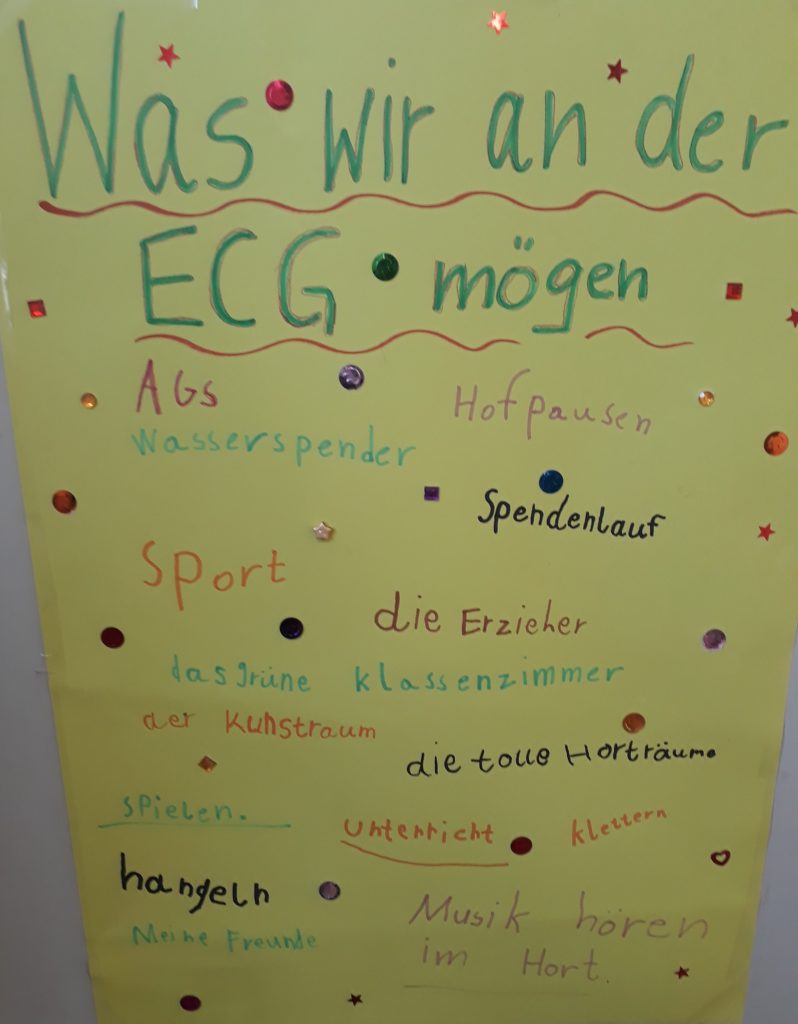 Was wir an der
ECG mögen
AGs
Hofpausen
Wasserspender
Spendenlauf
Sport
die Erzieher
das grüne Klassenzimmer
der Kunstraum
die tolle Horträume
spielen.
Unterricht
klettern
hangeln
Meine Freunde
Musik hören
im Hort.